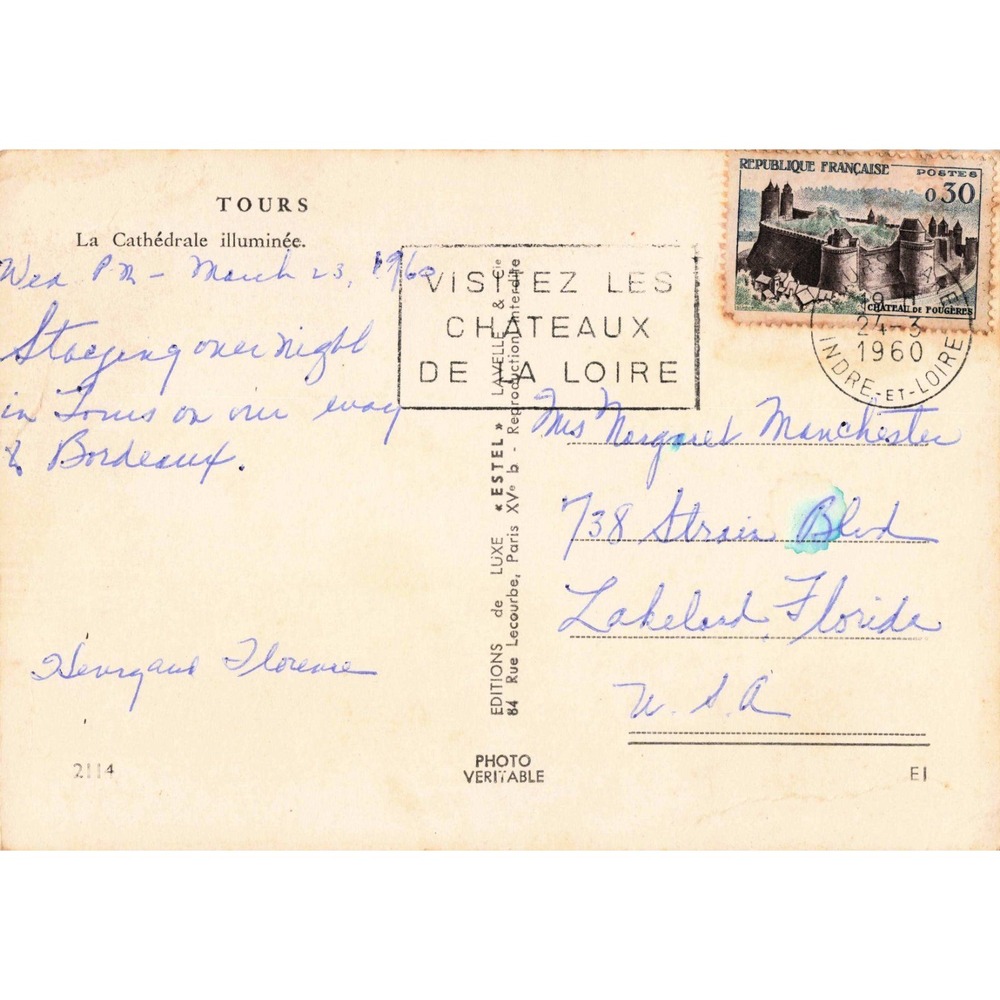 TOURS
La Cathédrale illuminée.
Wed PM - March 23, 1960
Staying over night
in Tours on our way
to Bordeaux.
Henry and Florence
2114
VISITEZ LES
CHATEAUX
DE LA LOIRE
EDITIONS de LUXE « ESTEL » LAVELLE & Cie
84 Rue Lecourbe, Paris XVe b - Reproduction Interdite
PHOTO
VERITABLE
REPUBLIQUE FRANÇAISE POSTES
0.30
CHATEAU DE FOUGERES
24-3
1960
INDRE-ET-LOIRE
Mrs Margaret Manchester
738 Strain Blvd
Lakeland, Florida
U.S.A
EI